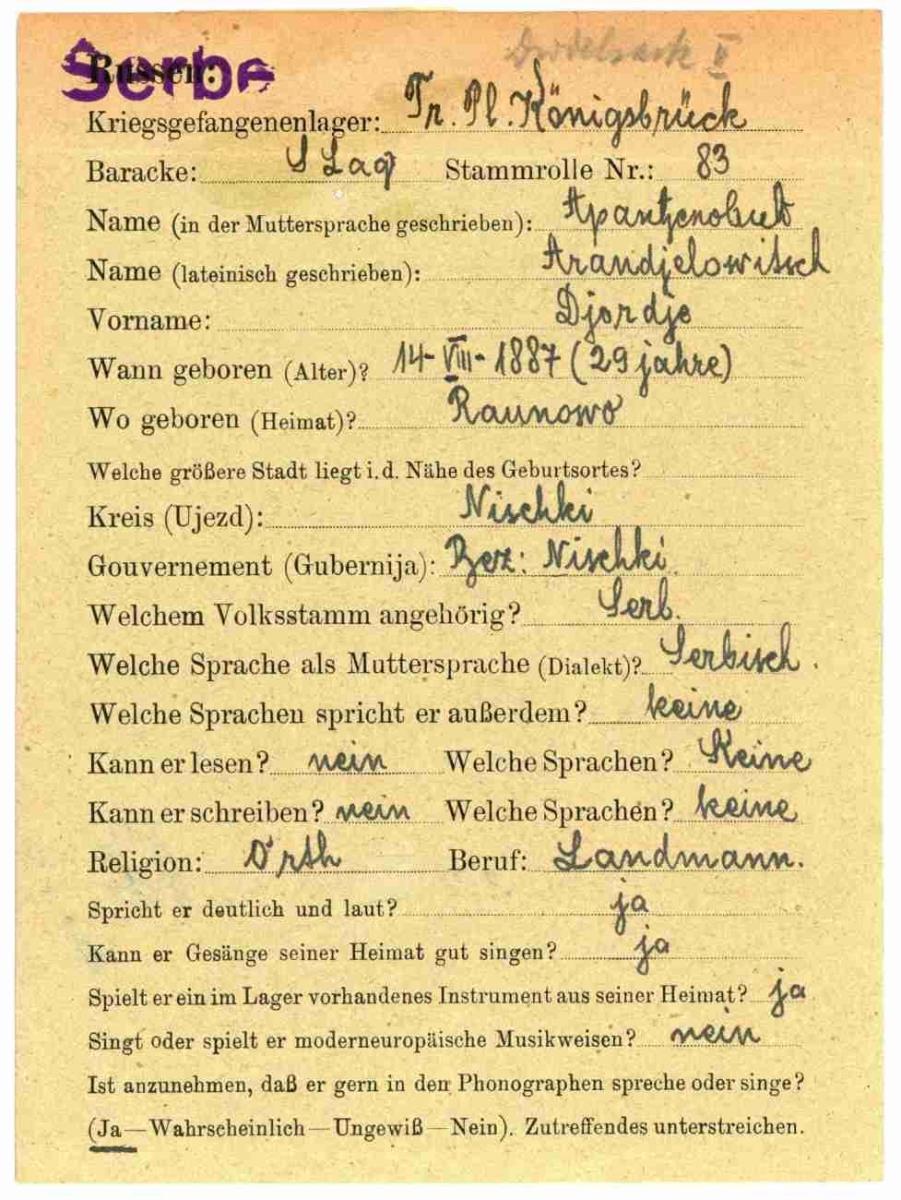 Dudelsack II
Russen:
Serbe
Kriegsgefangenenlager: Tr. Pl. Königsbrück
Baracke: S Lag Stammrolle Nr.: 83
Name (in der Muttersprache geschrieben):
Name (lateinisch geschrieben): Arandjelowitsch
Vorname: Djordje
Wann geboren (Alter)? 14-VIII-1887 (29 jahre)
Wo geboren (Heimat)? Raunowo
Welche größere Stadt liegt i. d. Nähe des Geburtsortes?
Kreis (Ujezd): Nischki
Gouvernement (Gubernija): Bez: Nischki.
Welchem Volksstamm angehörig? Serb.
Welche Sprache als Muttersprache (Dialekt)? Serbisch.
Welche Sprachen spricht er außerdem? keine
Kann er lesen? nein Welche Sprachen? Keine
Kann er schreiben? nein Welche Sprachen? keine
Religion: Orth Beruf: Landmann.
Spricht er deutlich und laut? ja
Kann er Gesänge seiner Heimat gut singen? ja
Spielt er ein im Lager vorhandenes Instrument aus seiner Heimat? ja
Singt oder spielt er moderneuropäische Musikweisen? nein
Ist anzunehmen, daß er gern in den Phonographen spreche oder singe?
(Ja—Wahrscheinlich—Ungewiß—Nein). Zutreffendes unterstreichen.